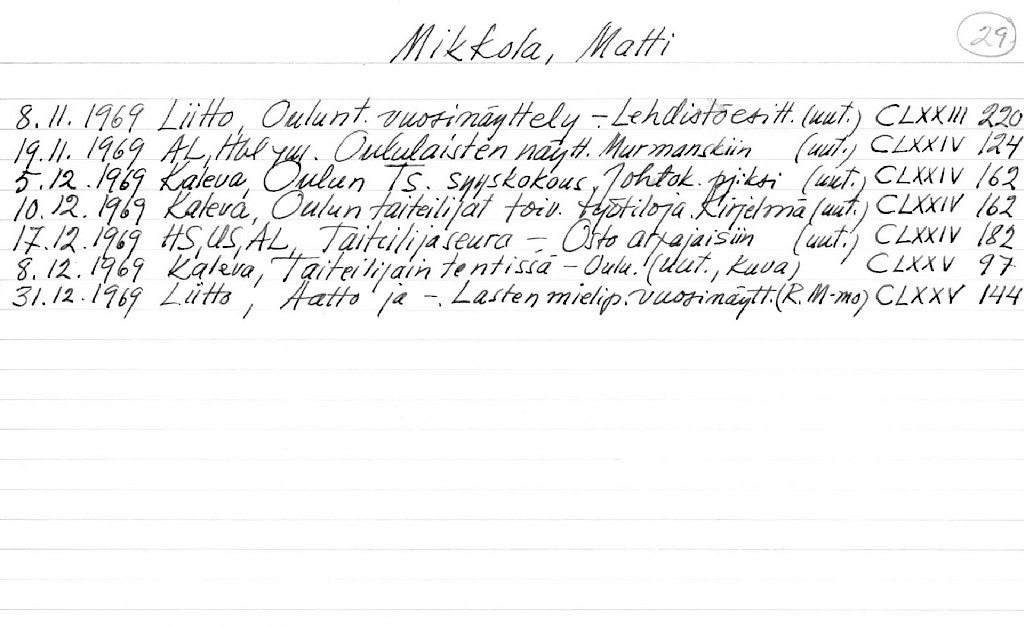 Mikkola, Matti
29.
8.11.1969 Liitto, Oulunt. vuosinäyttely – Lehdistöesitt. (uut.) CLXXIII 220
19.11.1969 AL, Hbl ym. Oululaisten näytt. Murmanskiin (uut.) CLXXIV 124
5.12.1969 Kaleva, Oulun Ts. syyskokous, Johtok. pjiksi (uut.) CLXXIV 162
10.12.1969 Kaleva, Oulun taiteilijat toiv. työtiloja. Kirjelmä (uut.) CLXXIV 162
17.12.1969 HS, US, AL, Taiteilijaseura – Osto arpajaisiin (uut.) CLXXIV 182
8.12.1969 Kaleva, Taiteilijain tentissä – Oulu. (uut., kuva) CLXXV 97
31.12.1969 Liitto, Aatto ja –. Lasten mielip. vuosinäytt. (R. M-mo) CLXXV 144